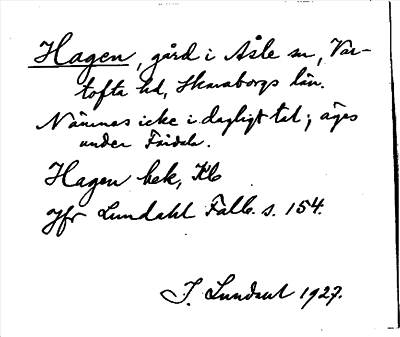 Hagen, gård i Åsle sn, Var-
tofta hd, Skaraborgs län.
Nämnes icke i dagligt tal; äges
under Fridek.
Hagen bek, Kb
Jfr Lundahl Falb. s. 154.
J. Lundahl 1927.